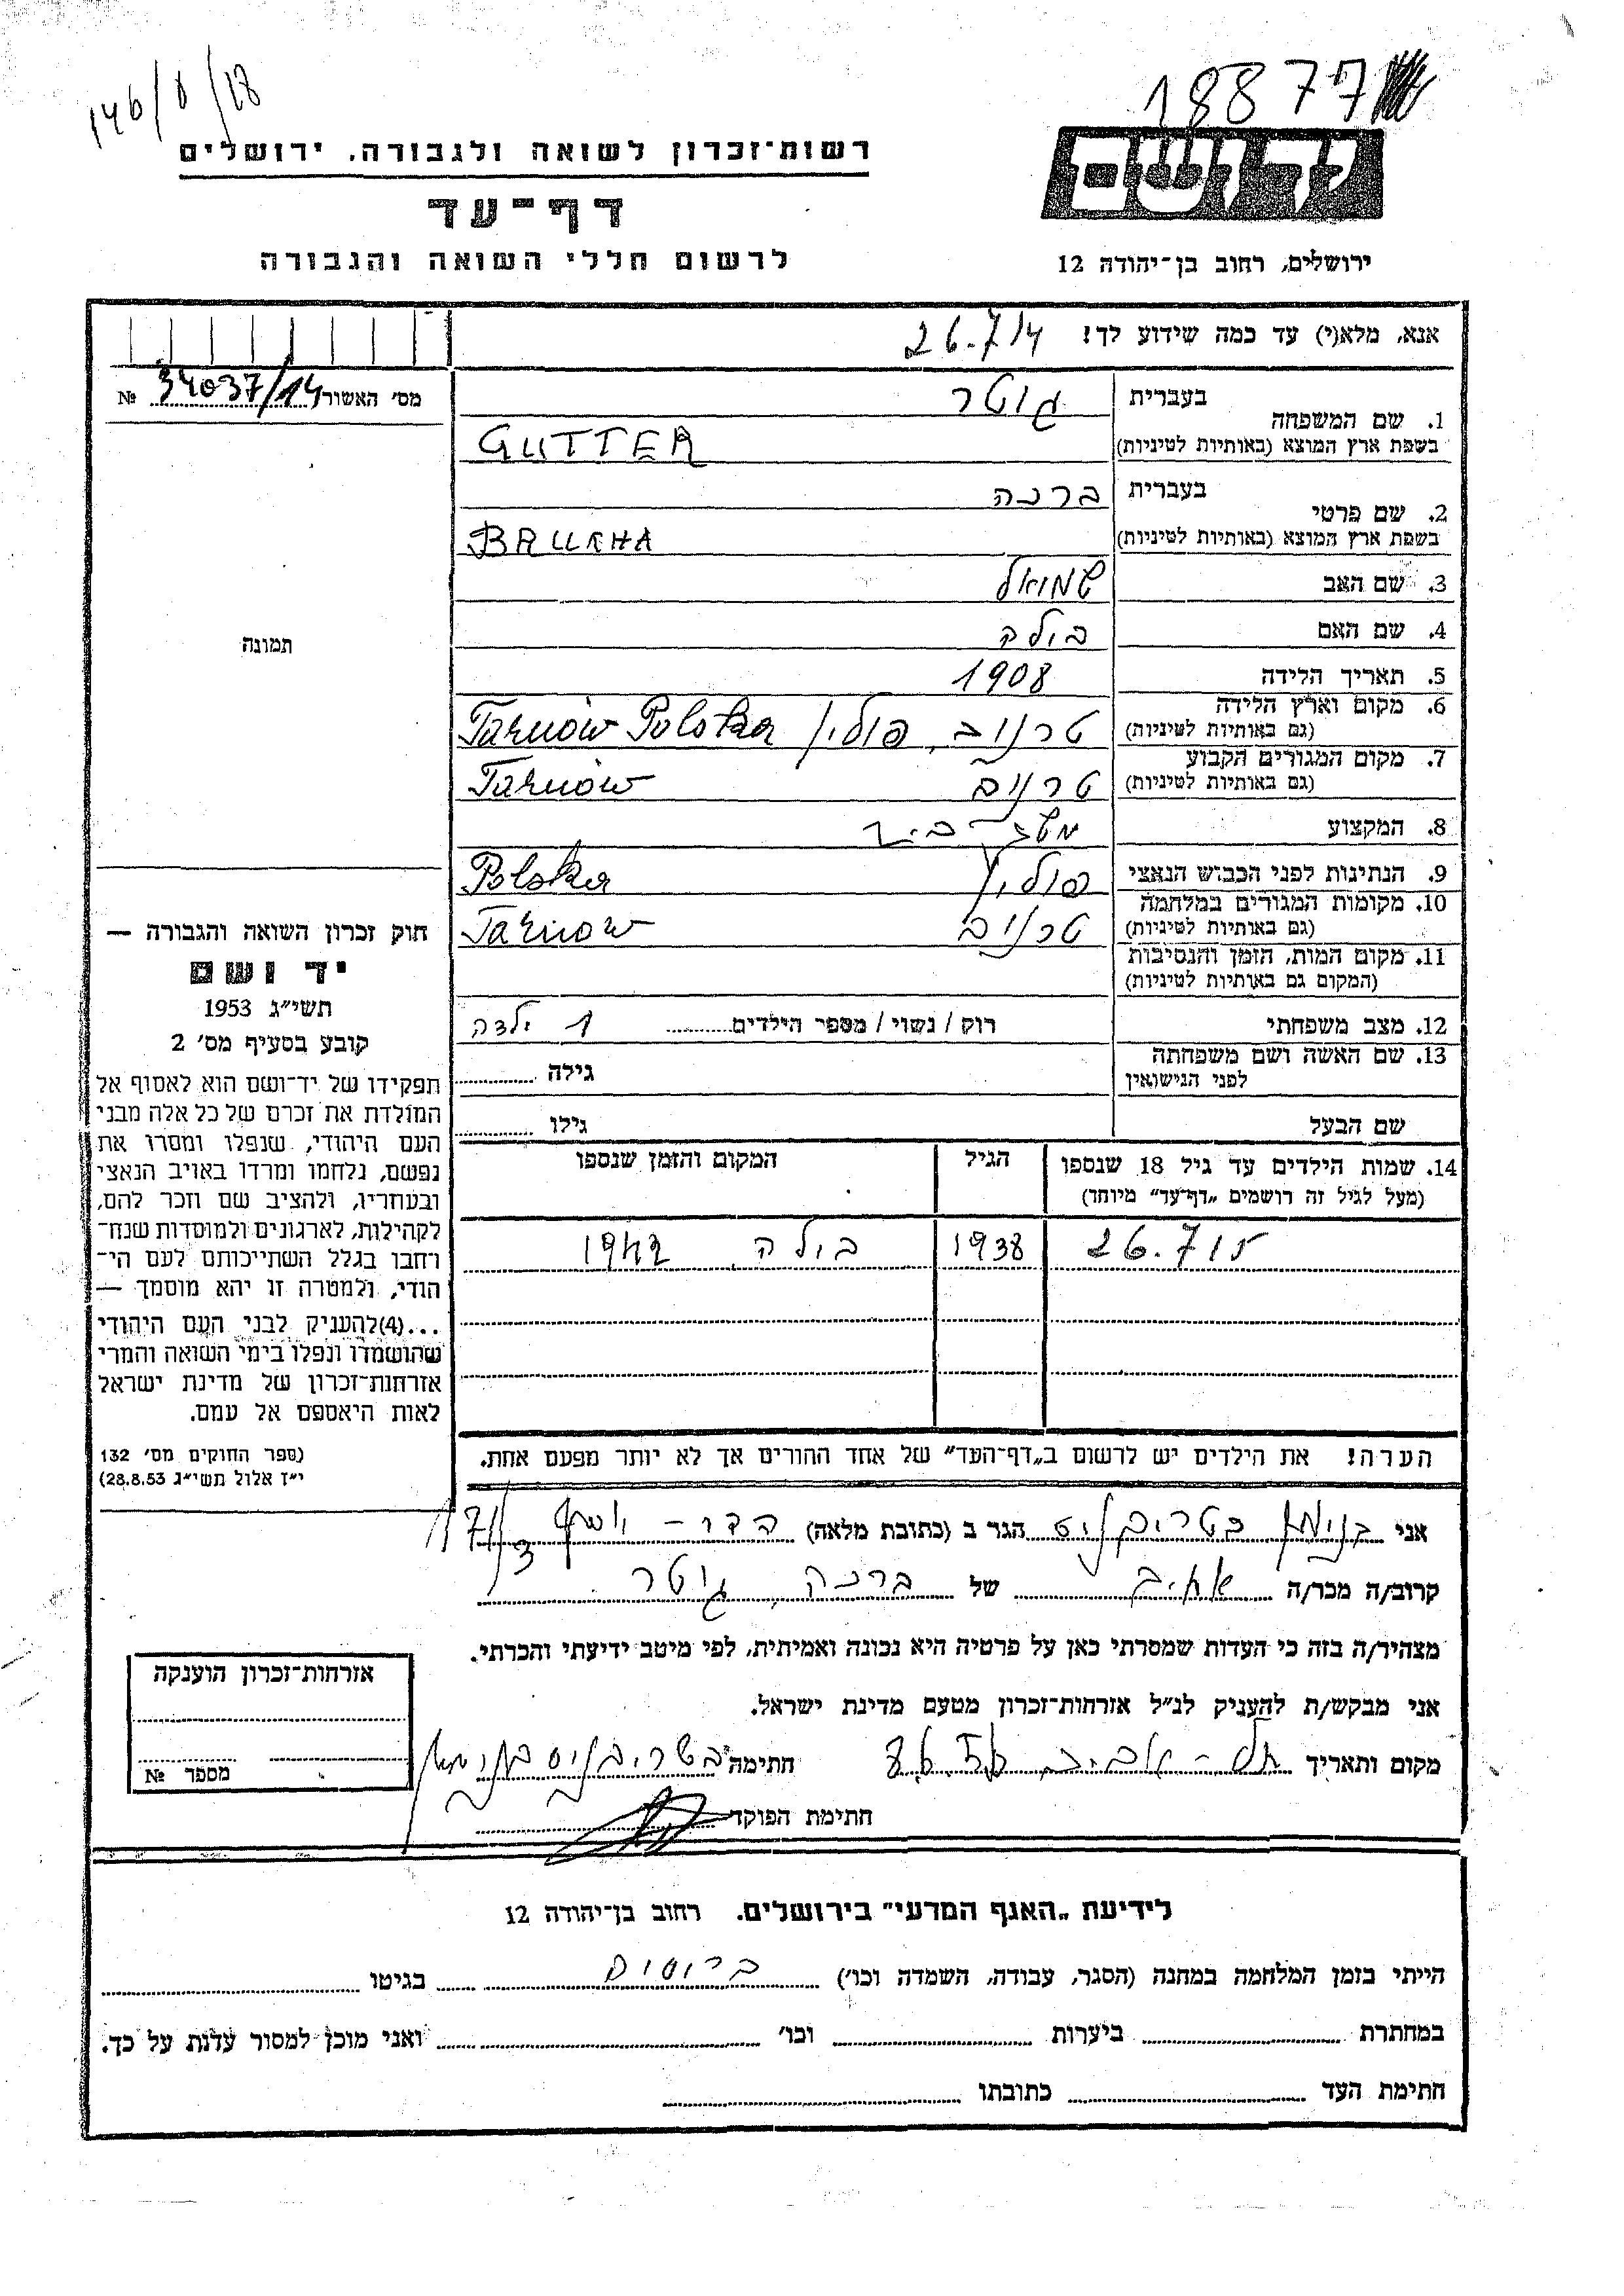 146/8/28
18877
רשות־זכרון לשואה ולגבורה, ירושלים
דף־עד
לרשום חללי השואה והגבורה
ירושלים, רחוב בן־יהודה 12
אנא, מלא(י) עד כמה שידוע לך! 26.714
מס' האשור 34037/14 №
1. שם המשפחה
בעברית גוטר
בשפת ארץ המוצא (באותיות לטיניות) GUTTER
2. שם פרטי
בעברית ברכה
בשפת ארץ המוצא (באותיות לטיניות) BRUKHA
3. שם האב שמואל
4. שם האם בילה
תמונה
5. תאריך הלידה 1908
6. מקום וארץ הלידה
(גם באותיות לטיניות) טרנוב, פולין Tarnów Polska
7. מקום המגורים הקבוע
(גם באותיות לטיניות) טרנוב Tarnów
8. המקצוע משק־בית
9. הנתינות לפני הכבוש הנאצי פולין Polska
10. מקומות המגורים במלחמה
(גם באותיות לטיניות) טרנוב Tarnów
11. מקום המות, הזמן והנסיבות
(המקום גם באותיות לטיניות)
12. מצב משפחתי רוק / נשוי / מספר הילדים 1 ילדה
13. שם האשה ושם משפחתה
לפני הנישואין גילה
שם הבעל גילו
14. שמות הילדים עד גיל 18 שנספו
(מעל לגיל זה רושמים „דף־עד” מיוחד)
הגיל
המקום והזמן שנספו
26.715 1938 בילה 1942
הערה! את הילדים יש לרשום ב„דף־העד” של אחד ההורים אך לא יותר מפעם אחת.
חוק זכרון השואה והגבורה —
יד ושם
תשי״ג 1953
קובע בסעיף מס' 2
תפקידו של יד־ושם הוא לאסוף אל
המולדת את זכרם של כל אלה מבני
העם היהודי, שנפלו ומסרו את
נפשם, נלחמו ומרדו באויב הנאצי
ובעוזריו, ולהציב שם וזכר להם,
לקהילות, לארגונים ולמוסדות שנח־
רחבו בגלל השתייכותם לעם הי־
הודי, ולמטרה זו יהא מוסמך —
...(4)להעניק לבני העם היהודי
שהושמדו ונפלו בימי השואה והמרי
אזרחות־זכרון של מדינת ישראל
לאות היאספם אל עמם.
(ספר החוקים מס' 132
י״ז אלול תשי״ג 28.8.53)
אני הגר ב (כתובת מלאה) הדר־יוסף
קרוב/ה מכר/ה של ברכה גוטר
מצהיר/ה בזה כי העדות שמסרתי כאן על פרטיה היא נכונה ואמיתית, לפי מיטב ידיעתי והכרתי.
אני מבקש/ת להעניק לנ״ל אזרחות־זכרון מטעם מדינת ישראל.
מקום ותאריך תל־אביב חתימה
חתימת הפוקד
אזרחות־זכרון הוענקה
מספר №
לידיעת „האגף המדעי” בירושלים, רחוב בן־יהודה 12
הייתי בזמן המלחמה במחנה (הסגר, עבודה, השמדה וכו') בגיטו
במחתרת ביערות וכו' ואני מוכן למסור עדות על כך.
חתימת העד כתובתו